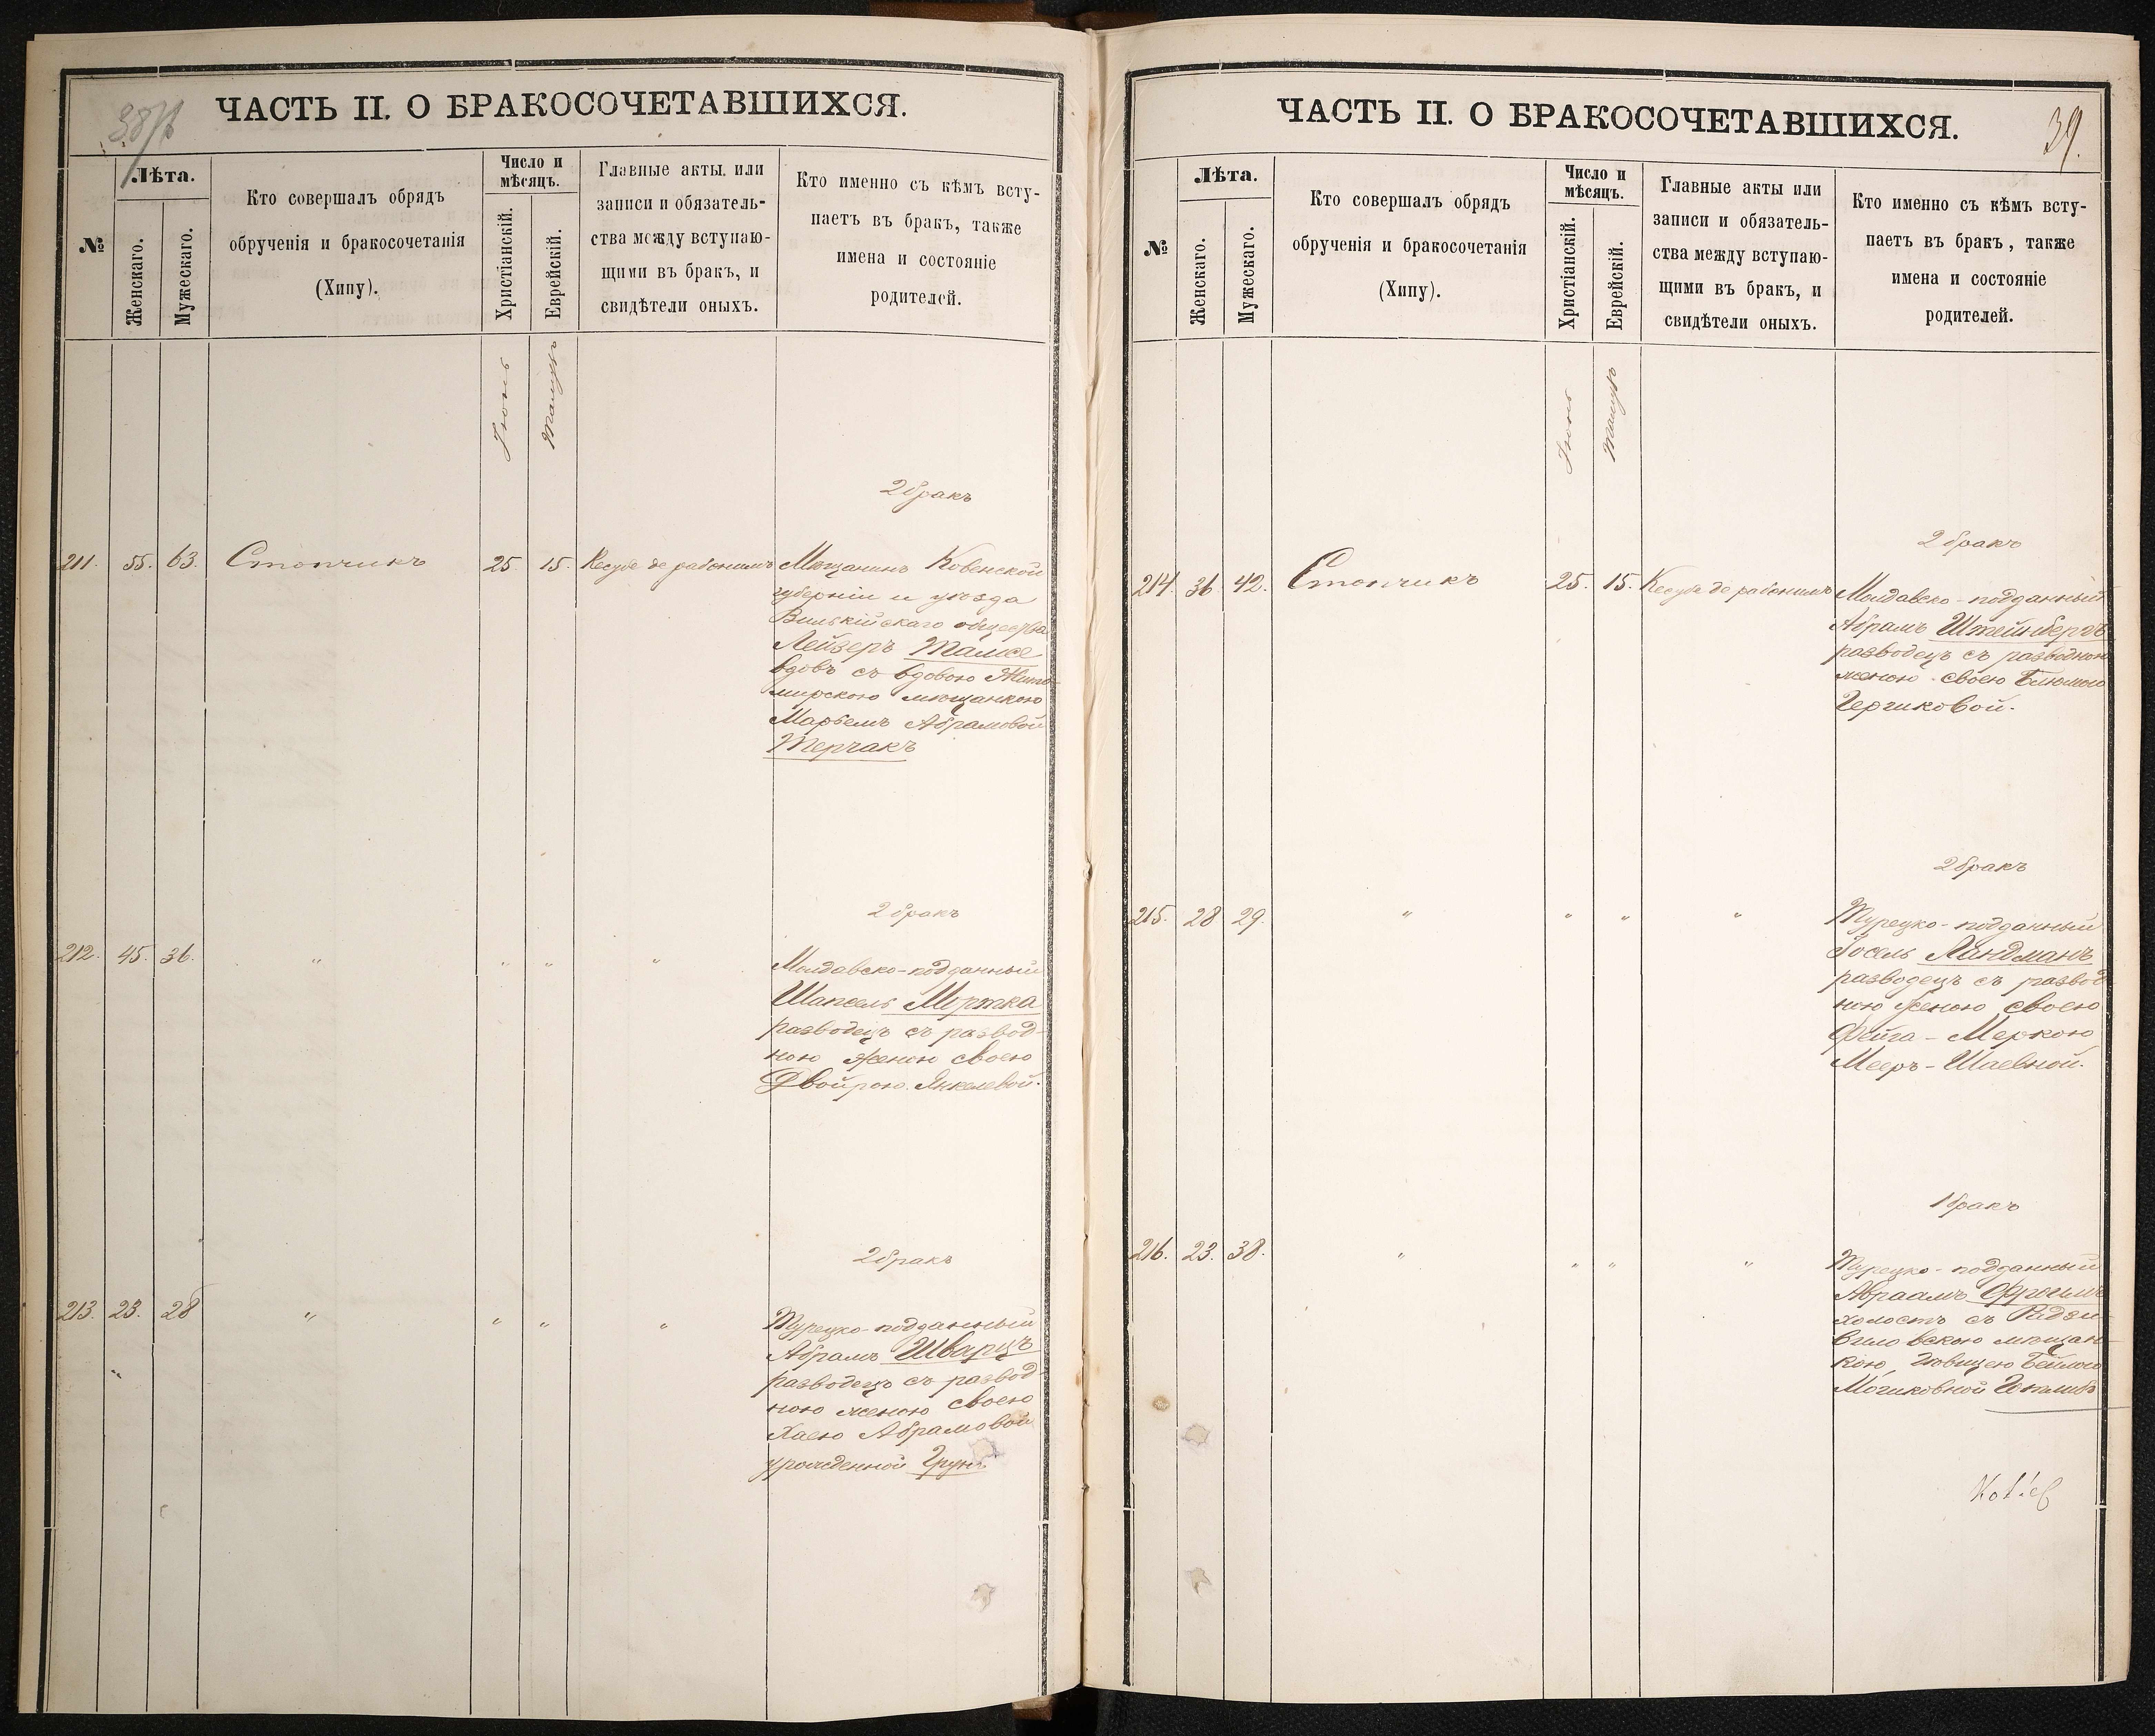 ЧАСТЬ II. О БРАКОСОЧЕТАВШИХСЯ.
№
Лѣта.
Женскаго.
Мужескаго.
Кто совершалъ обрядъ
обрученія и бракосочетанія
(Хипу).
Число и
мѣсяцъ.
Христіанскій.
Еврейскій.
Главные акты, или
записи и обязатель-
ства между вступаю-
щими въ бракъ, и
свидѣтели оныхъ.
Кто именно съ кѣмъ всту-
паетъ въ бракъ, также
имена и состояніе
родителей.
Іюнь
Тамузъ
2 бракъ
211. 55. 63. Стопчикъ 25 15. Кесубе де рабонимъ Мѣщанинъ Ковенской
губерніи и уѣзда
Вилькійскаго общества
Лейзеръ
вдовъ съ вдовою Жито-
мирскою мѣщанкою
Марьемъ Абрамовой
Терчакъ
2 бракъ
212. 45. 36. " " " " Молдавско-подданный
Шапсель Мортка
разводецъ съ развод-
ною женою своею
Двойрою Янкелевой.
2 бракъ
213. 23. 28 " " " " Турецко-подданный
Абрамъ Шварцъ
разводецъ съ развод-
ною женою своею
Хаею Абрамовой
урожденной
ЧАСТЬ II. О БРАКОСОЧЕТАВШИХСЯ.
39.
№
Лѣта.
Женскаго.
Мужескаго.
Кто совершалъ обрядъ
обрученія и бракосочетанія
(Хипу).
Число и
мѣсяцъ.
Христіанскій.
Еврейскій.
Главные акты или
записи и обязатель-
ства между вступаю-
щими въ бракъ, и
свидѣтели оныхъ.
Кто именно съ кѣмъ всту-
паетъ въ бракъ, также
имена и состояніе
родителей.
Іюнь
Тамузъ
2 бракъ
214. 36. 42. Стопчикъ 25. 15. Кесубе де рабонимъ Молдавско-подданный
Абрамъ Штейнбергъ
разводецъ съ разводною
женою своею Блюмою
Герчиковой.
2 бракъ
215. 28 29. " " " " Турецко-подданный
Іосель Ландманъ
разводецъ съ развод-
ною женою своею
Фейга-Меркою
Мееръ-Шаевной.
1 бракъ
216. 23. 38. " " " " Турецко-подданный
Авраамъ
холостъ съ Радзи-
виловскою мѣщан-
кою, дѣвицею Бейлою